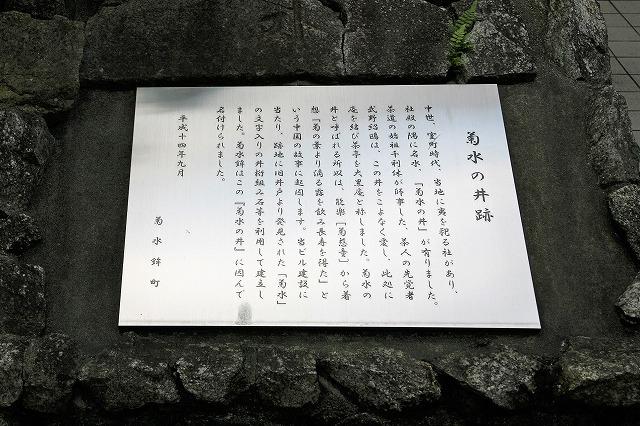 菊水の井跡
中世、室町時代、当地に夷を祀る社があり、
社殿の隅に名水、『菊水の井』が有りました。
茶道の始祖千利休が師事した、茶人の先覚者
武野紹鴎は、この井をこよなく愛し、此処に
庵を結び茶亭を大黒庵と称しました。菊水の
井と呼ばれる所以は、能楽『菊慈童』から着
想『菊の葉より滴る露を飲み長寿を得た』と
いう中国の故事に起因します。当ビル建設に
当たり、跡地に旧井戸より発見された『菊水』
の文字入りの井桁組み石等を利用して建立し
ました。菊水鉾はこの『菊水の井』に因んで
名付けられました。
平成十四年九月
菊水鉾町